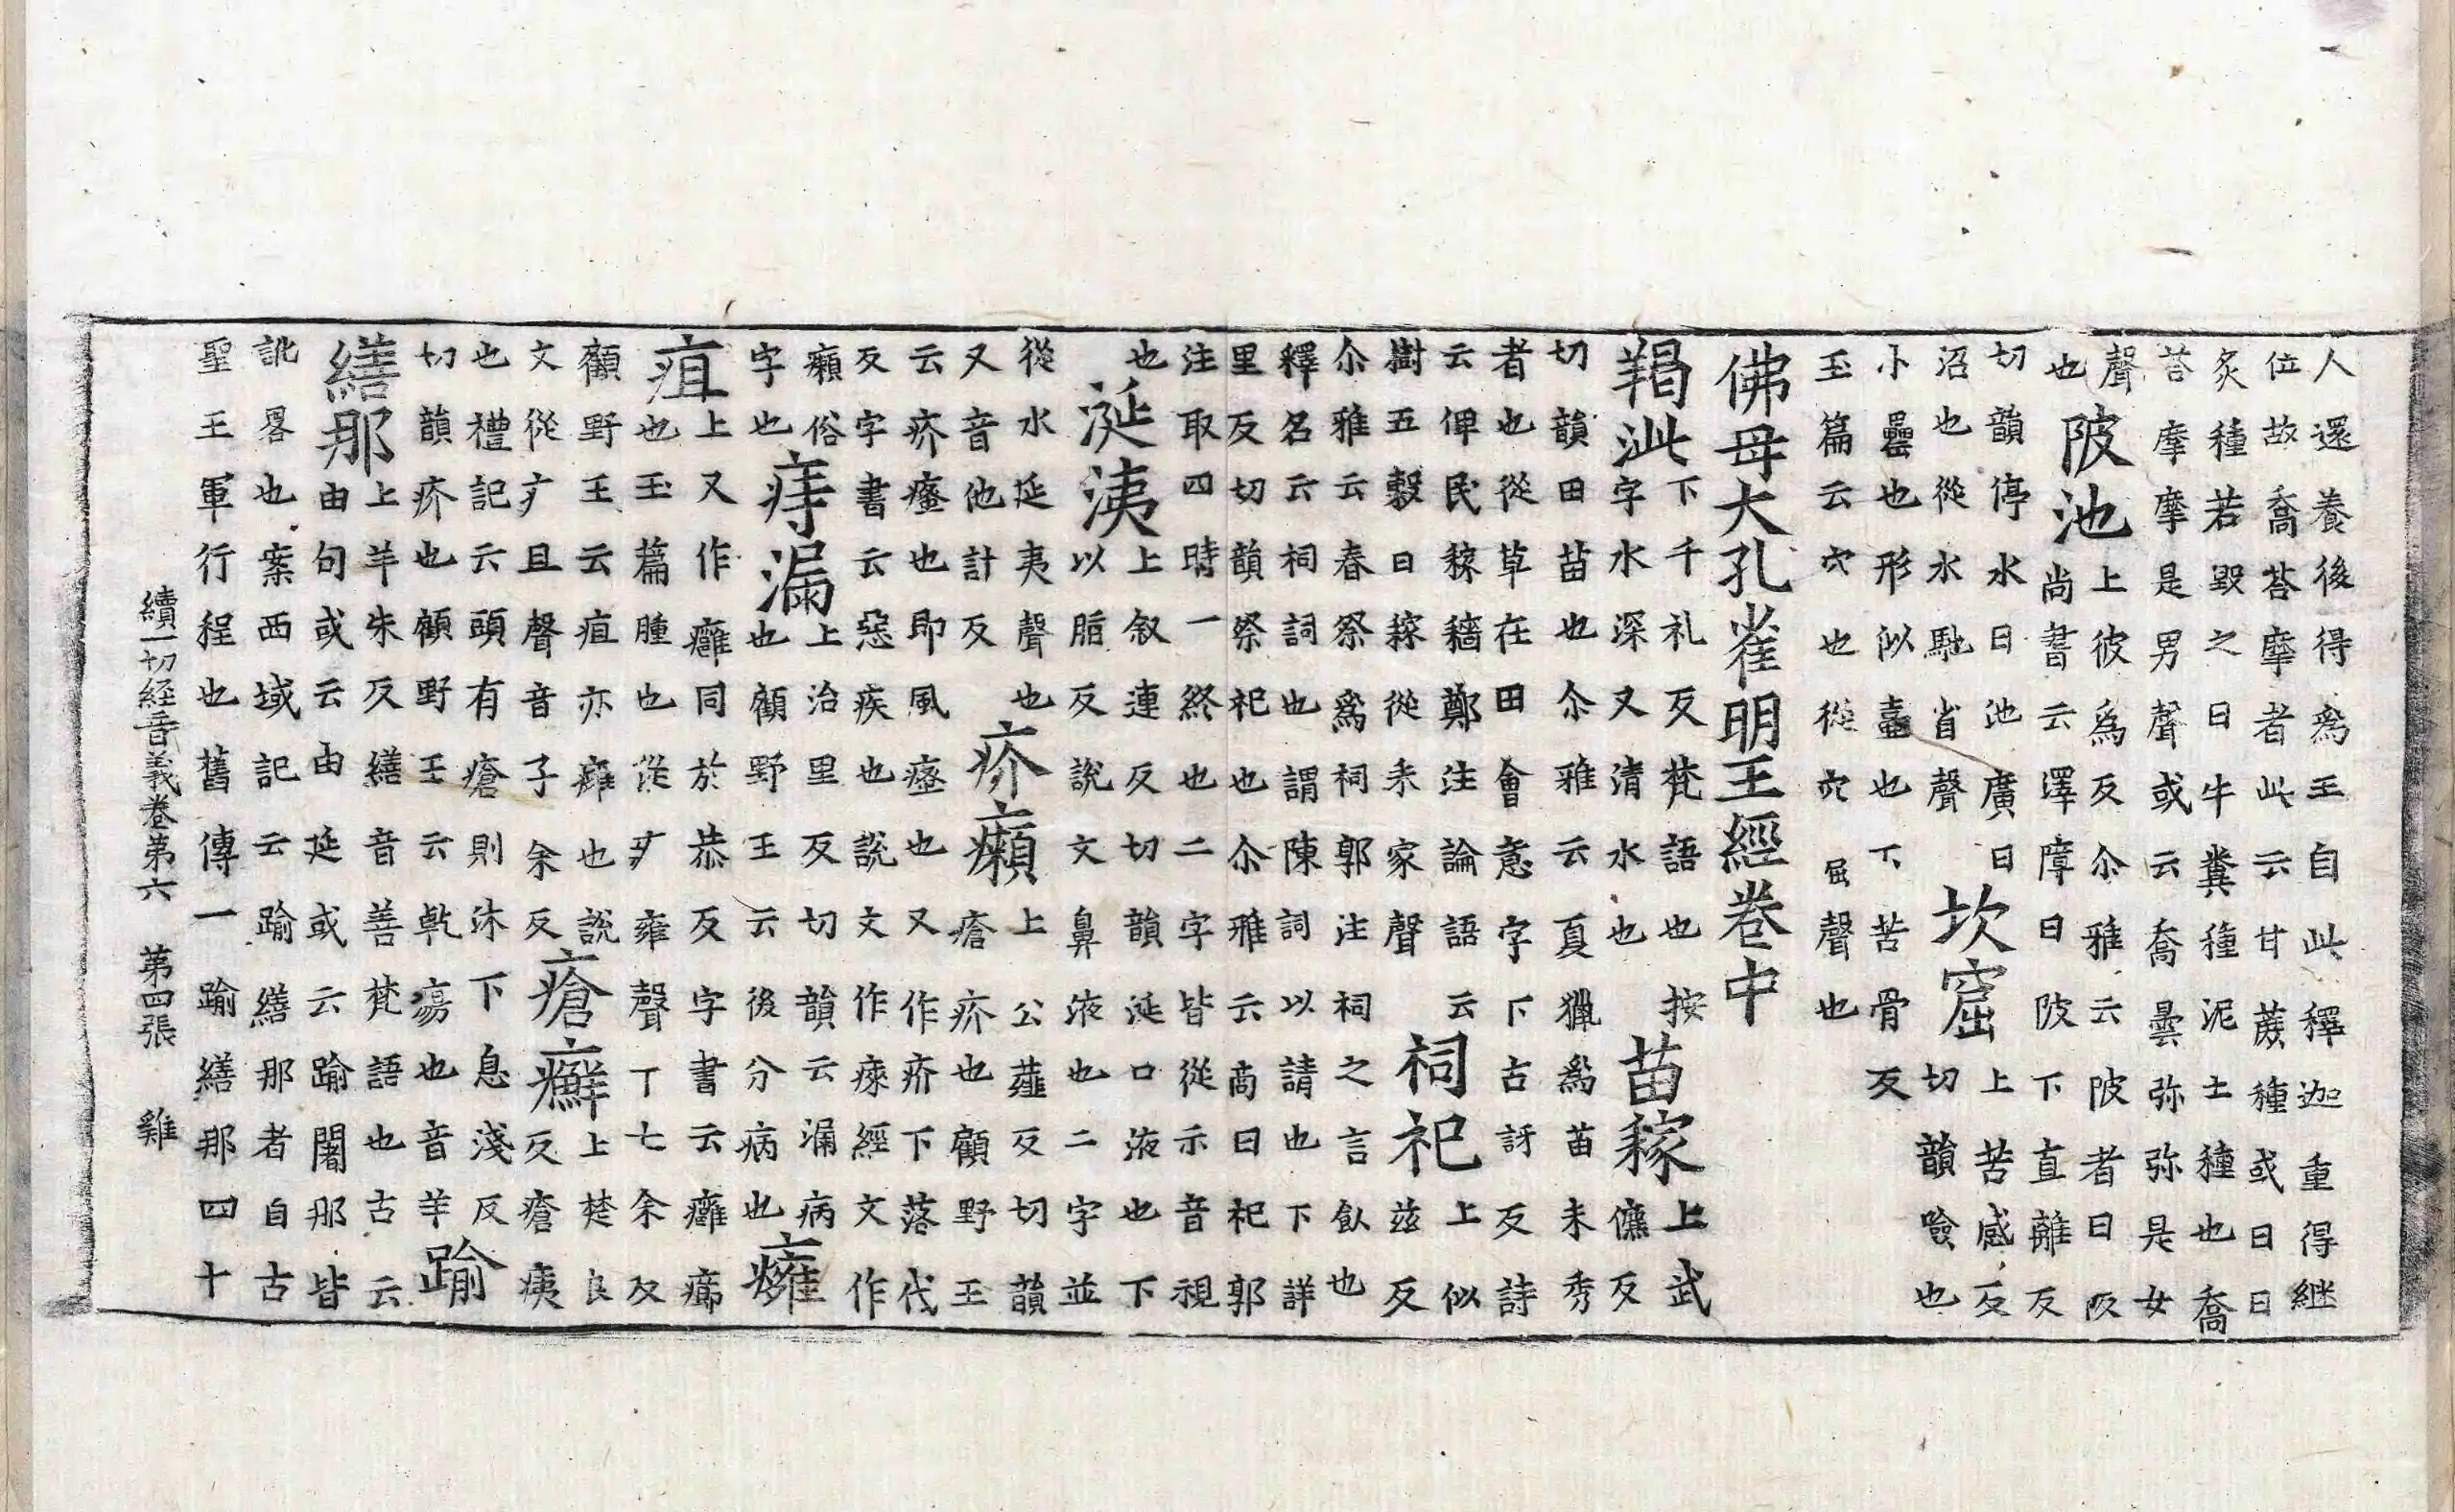 人還養後得爲王自此釋迦重得継
位故喬荅摩者此云甘蔗種或曰日
炙種若毀之曰牛糞種泥土種也喬
荅摩摩是男聲或云喬曇弥弥是女
聲也
陂池
上彼爲反尒雅云陂者曰阪
尚書云澤障曰陂下直離反
切韻停水曰池廣曰
沼也從水馳省聲
坎窟
上苦感反
切韻唅也
小罍也形似壷也下苦骨反
玉篇云穴也從穴屈聲也
佛母大孔雀明王經卷中
羯泚
下千礼反梵語也按
字水深又清水也
苗稼
上武
儦反
切韻田苗也尒雅云夏獵爲苗未秀
者也從草在田會意字下古訝反詩
云俾民稼穡鄭注論語云
樹五穀曰稼從禾家聲
祠祀
上似
茲反
尒雅云春祭爲祠郭注祠之言飤也
釋名云祠詞也謂陳詞以請也下詳
里反切韻祭祀也尒雅云商曰祀郭
注取四時一終也二字皆從示音視
也
涎洟
上叙連反切韻涎口液也下
以脂反說文鼻液也二字並
從水延夷聲也
又音他計反
疥癩
上公薤反切韻
瘡疥也顧野王
云疥瘙也即風瘙也又作疥下落代
反字書云惡疾也說文作㾢經文作
癩俗
字也
痔漏
上治里反切韻云漏病
也顧野王云後分病也
癰
疽
上又作癕同於恭反字書云癕癤
也玉篇腫也從疒雍聲下七余反
顧野王云疽亦癰也說
文從疒且聲音子余反
瘡癬
上楚良
反瘡痍
也禮記云頭有瘡則沐下息淺反
切韻疥也顧野王云乹瘍也音羊
踰
繕那
上羊朱反繕音善梵語也古云
由旬或云由延或云踰闍那皆
訛畧也案西域記云踰繕那者自古
聖王軍行程也舊傳一踰繕那四十
續一切経音義卷第六 第四張 雞